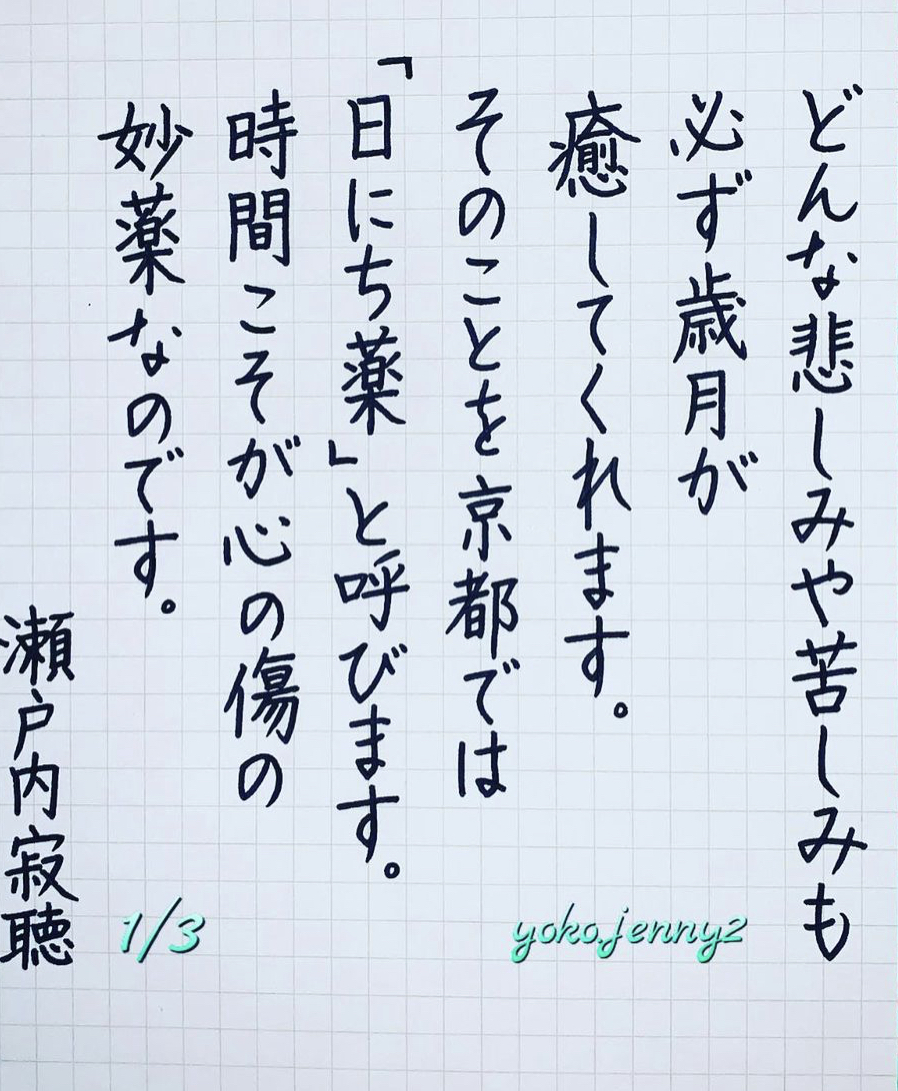 どんな悲しみや苦しみも
必ず歳月が
癒してくれます。
そのことを京都では
「日にち薬」と呼びます。
時間こそが心の傷の
妙薬なのです。
瀬戸内寂聴
1/3
yoko.jenny2